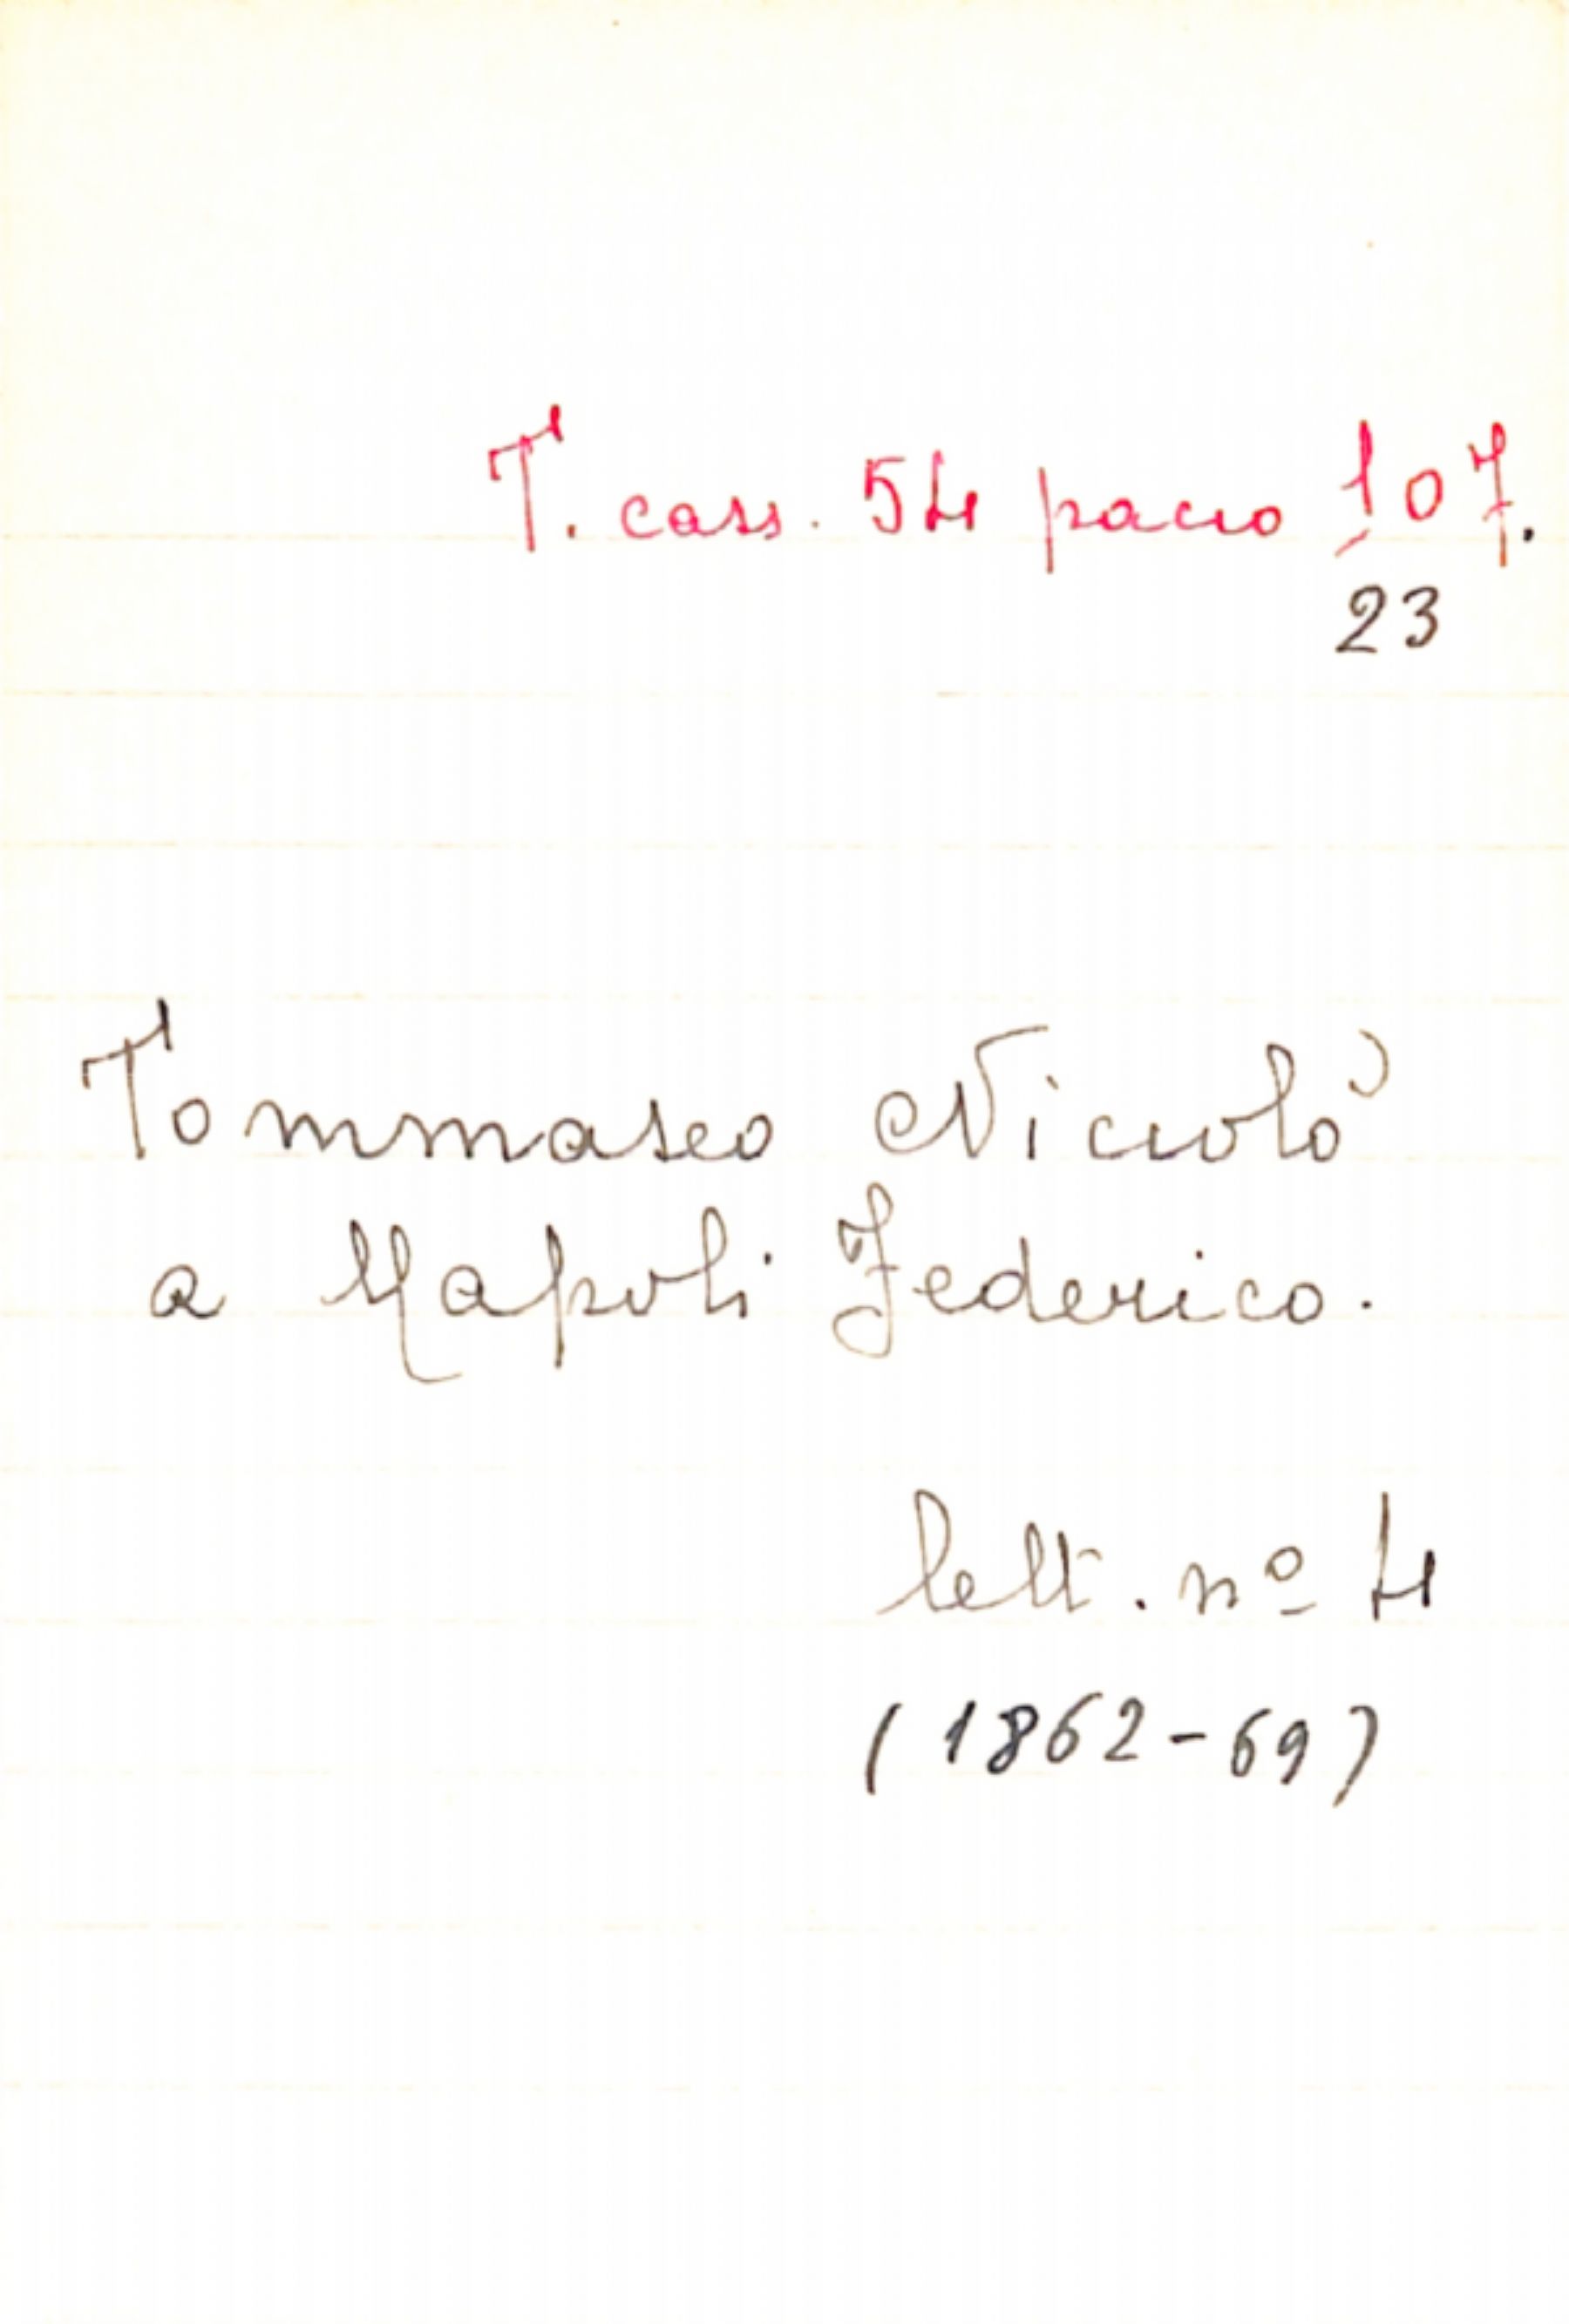 T. cass. 54 pacco 107.
23
Tommaseo Niccolò
a Napoli Federico.
lett. nº 4
(1862-69)